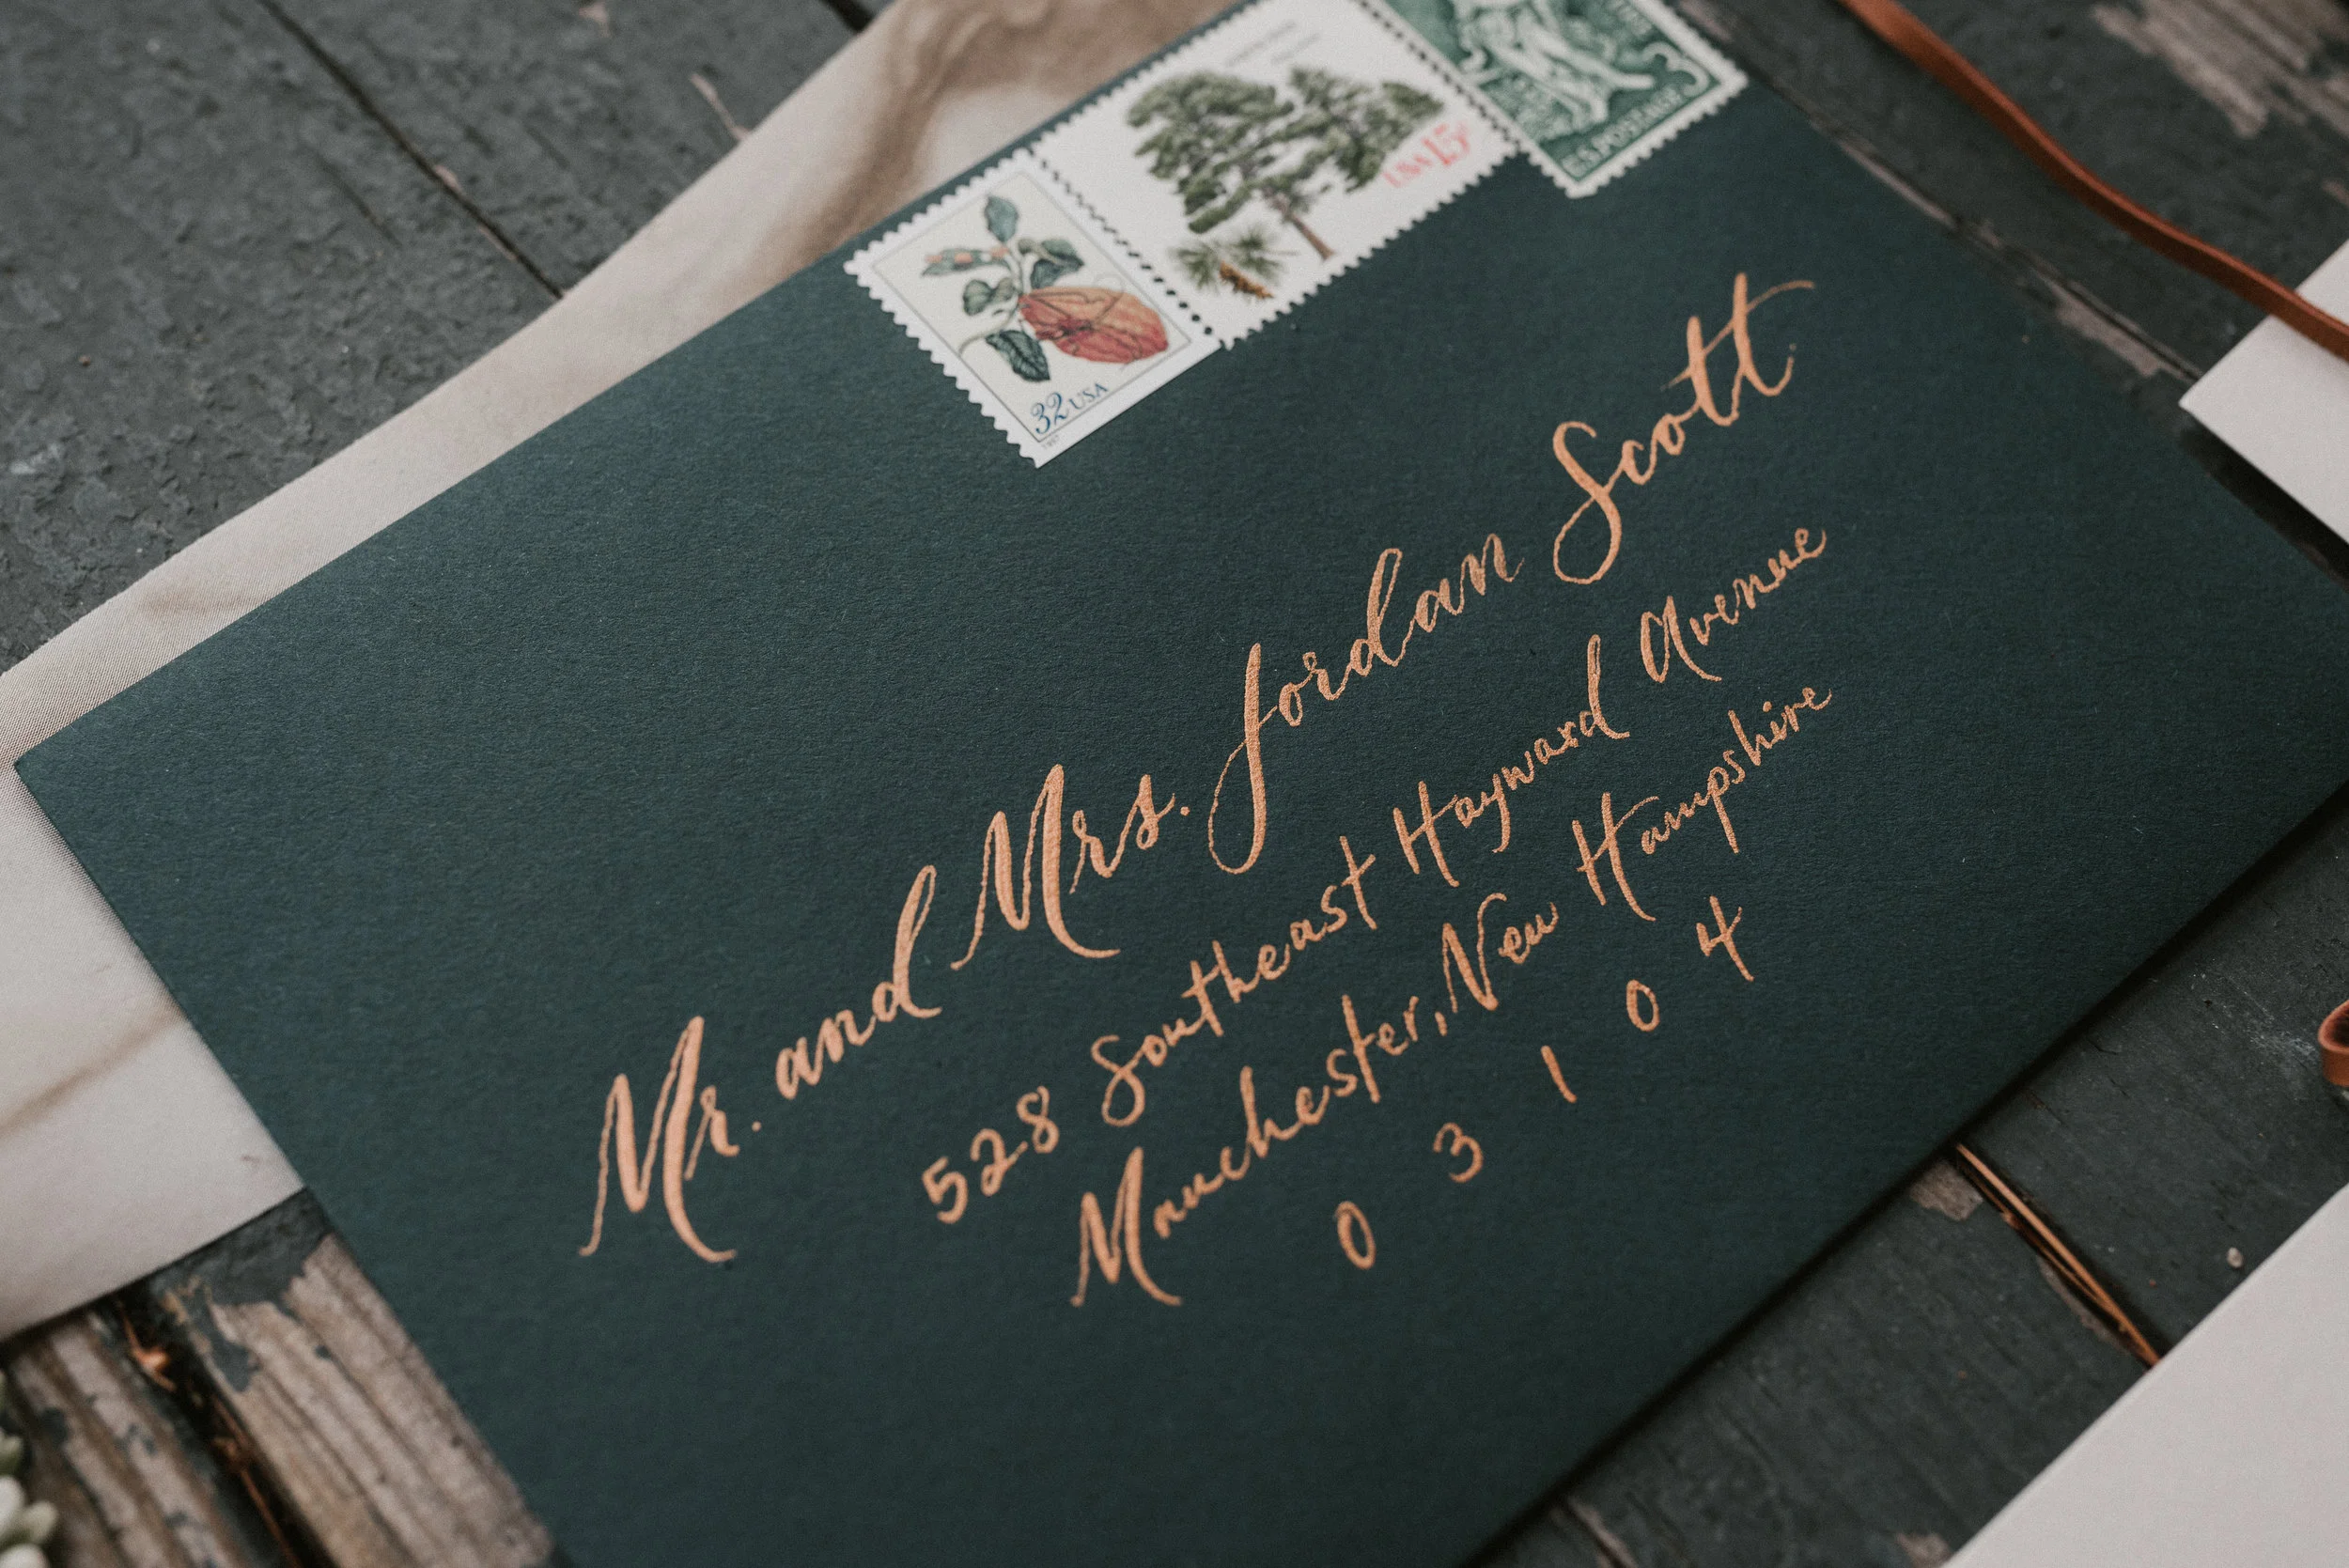 32 USA
1997
USA 15c
3
U.S. POSTAGE
Mr. and Mrs. Jordan Scott
528 Southeast Hayward Avenue
Manchester, New Hampshire
0 3 1 0 4